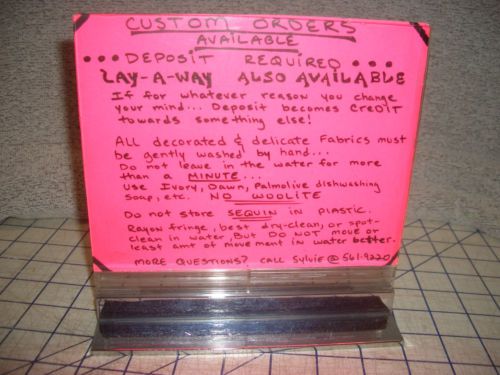 CUSTOM ORDERS
AVAILABLE
••• DEPOSIT REQUIRED •••
LAY-A-WAY ALSO AVAILABLE
If for whatever reason you change
your mind... Deposit becomes CREDIT
towards something else!
ALL decorated & delicate Fabrics must
be gently washed by hand...
Do not leave in the water for more
than a MINUTE...
Use Ivory, Dawn, Palmolive dishwashing
soap, etc. NO WOOLITE
Do not store SEQUIN in plastic.
Rayon fringe, best dry-clean, or spot-
clean in water But DO NOT move or
least amt of movement in water better.
MORE QUESTIONS? CALL Sylvie @ 561-9220